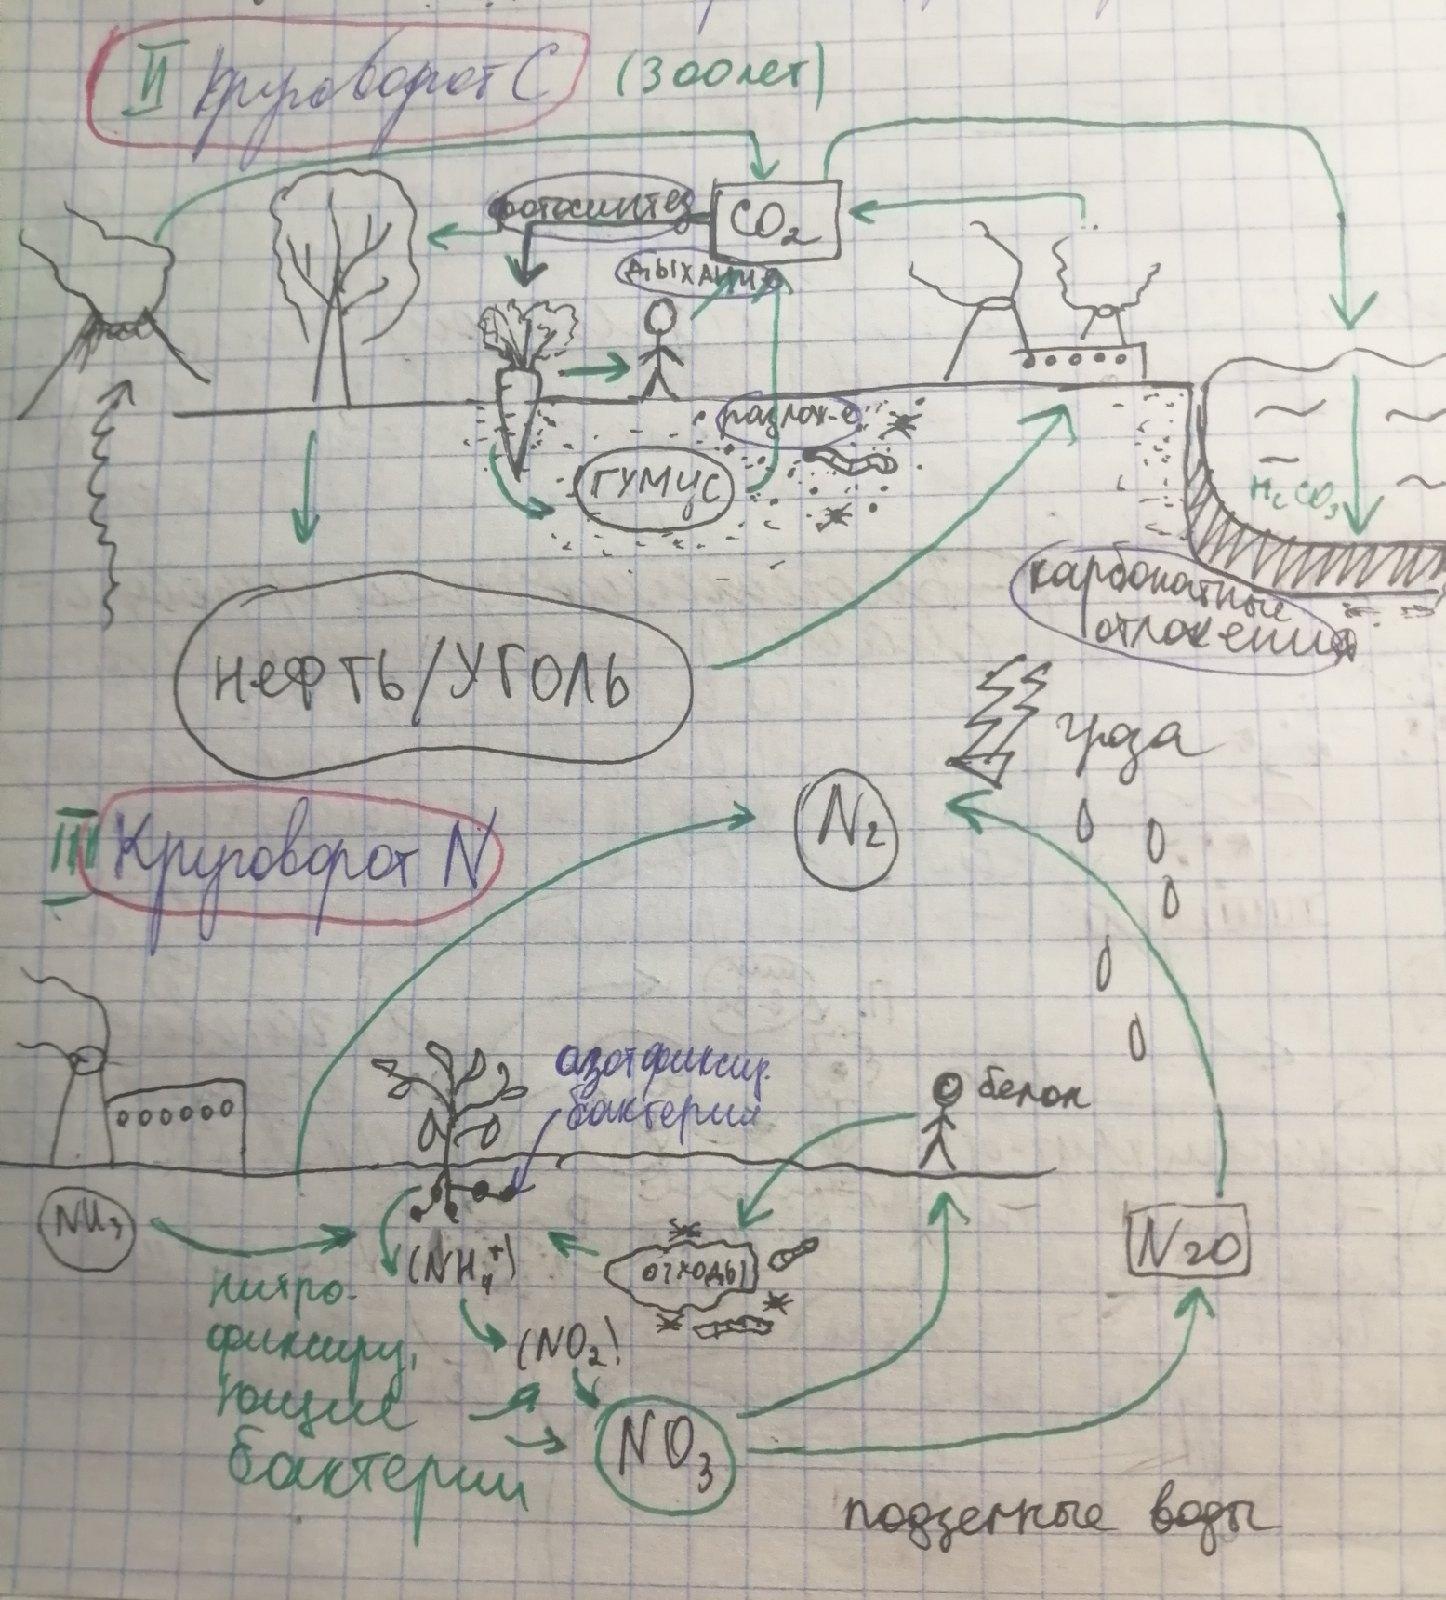 II Круговорот С (300лет)
фотосинтез
CO₂
дыхание
разлож-е
гумус
H₂CO₃
карбонатные
отложения
нефть/уголь
гроза
N₂
III Круговорот N
азотфиксир.
бактерии
белок
NH₃
(NH₄⁺)
отходы
N₂O
нитро-
фиксиру,
ющие
бактерии
(NO₂)
NO₃
подземные воды